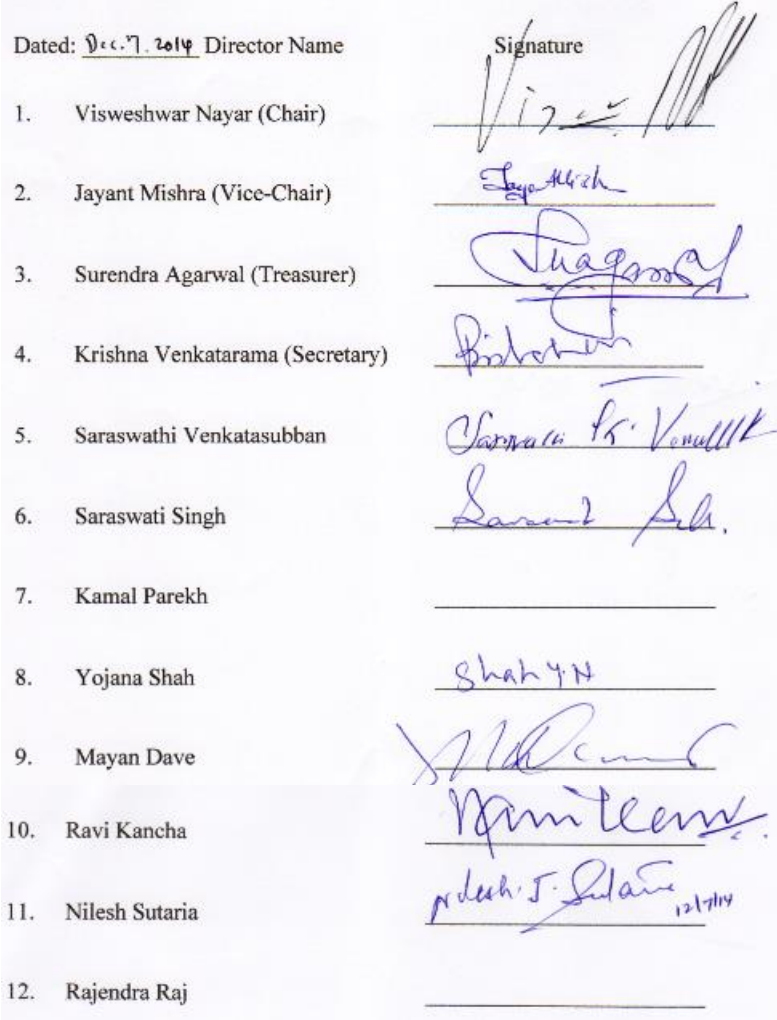 Dated: Dec. 7. 2014 Director Name Signature
1. Visweshwar Nayar (Chair)
2. Jayant Mishra (Vice-Chair)
3. Surendra Agarwal (Treasurer)
4. Krishna Venkatarama (Secretary)
5. Saraswathi Venkatasubban
6. Saraswati Singh
7. Kamal Parekh
8. Yojana Shah Shah Y.N
9. Mayan Dave
10. Ravi Kancha
11. Nilesh Sutaria Nilesh. J. Sutaria 12/7/14
12. Rajendra Raj